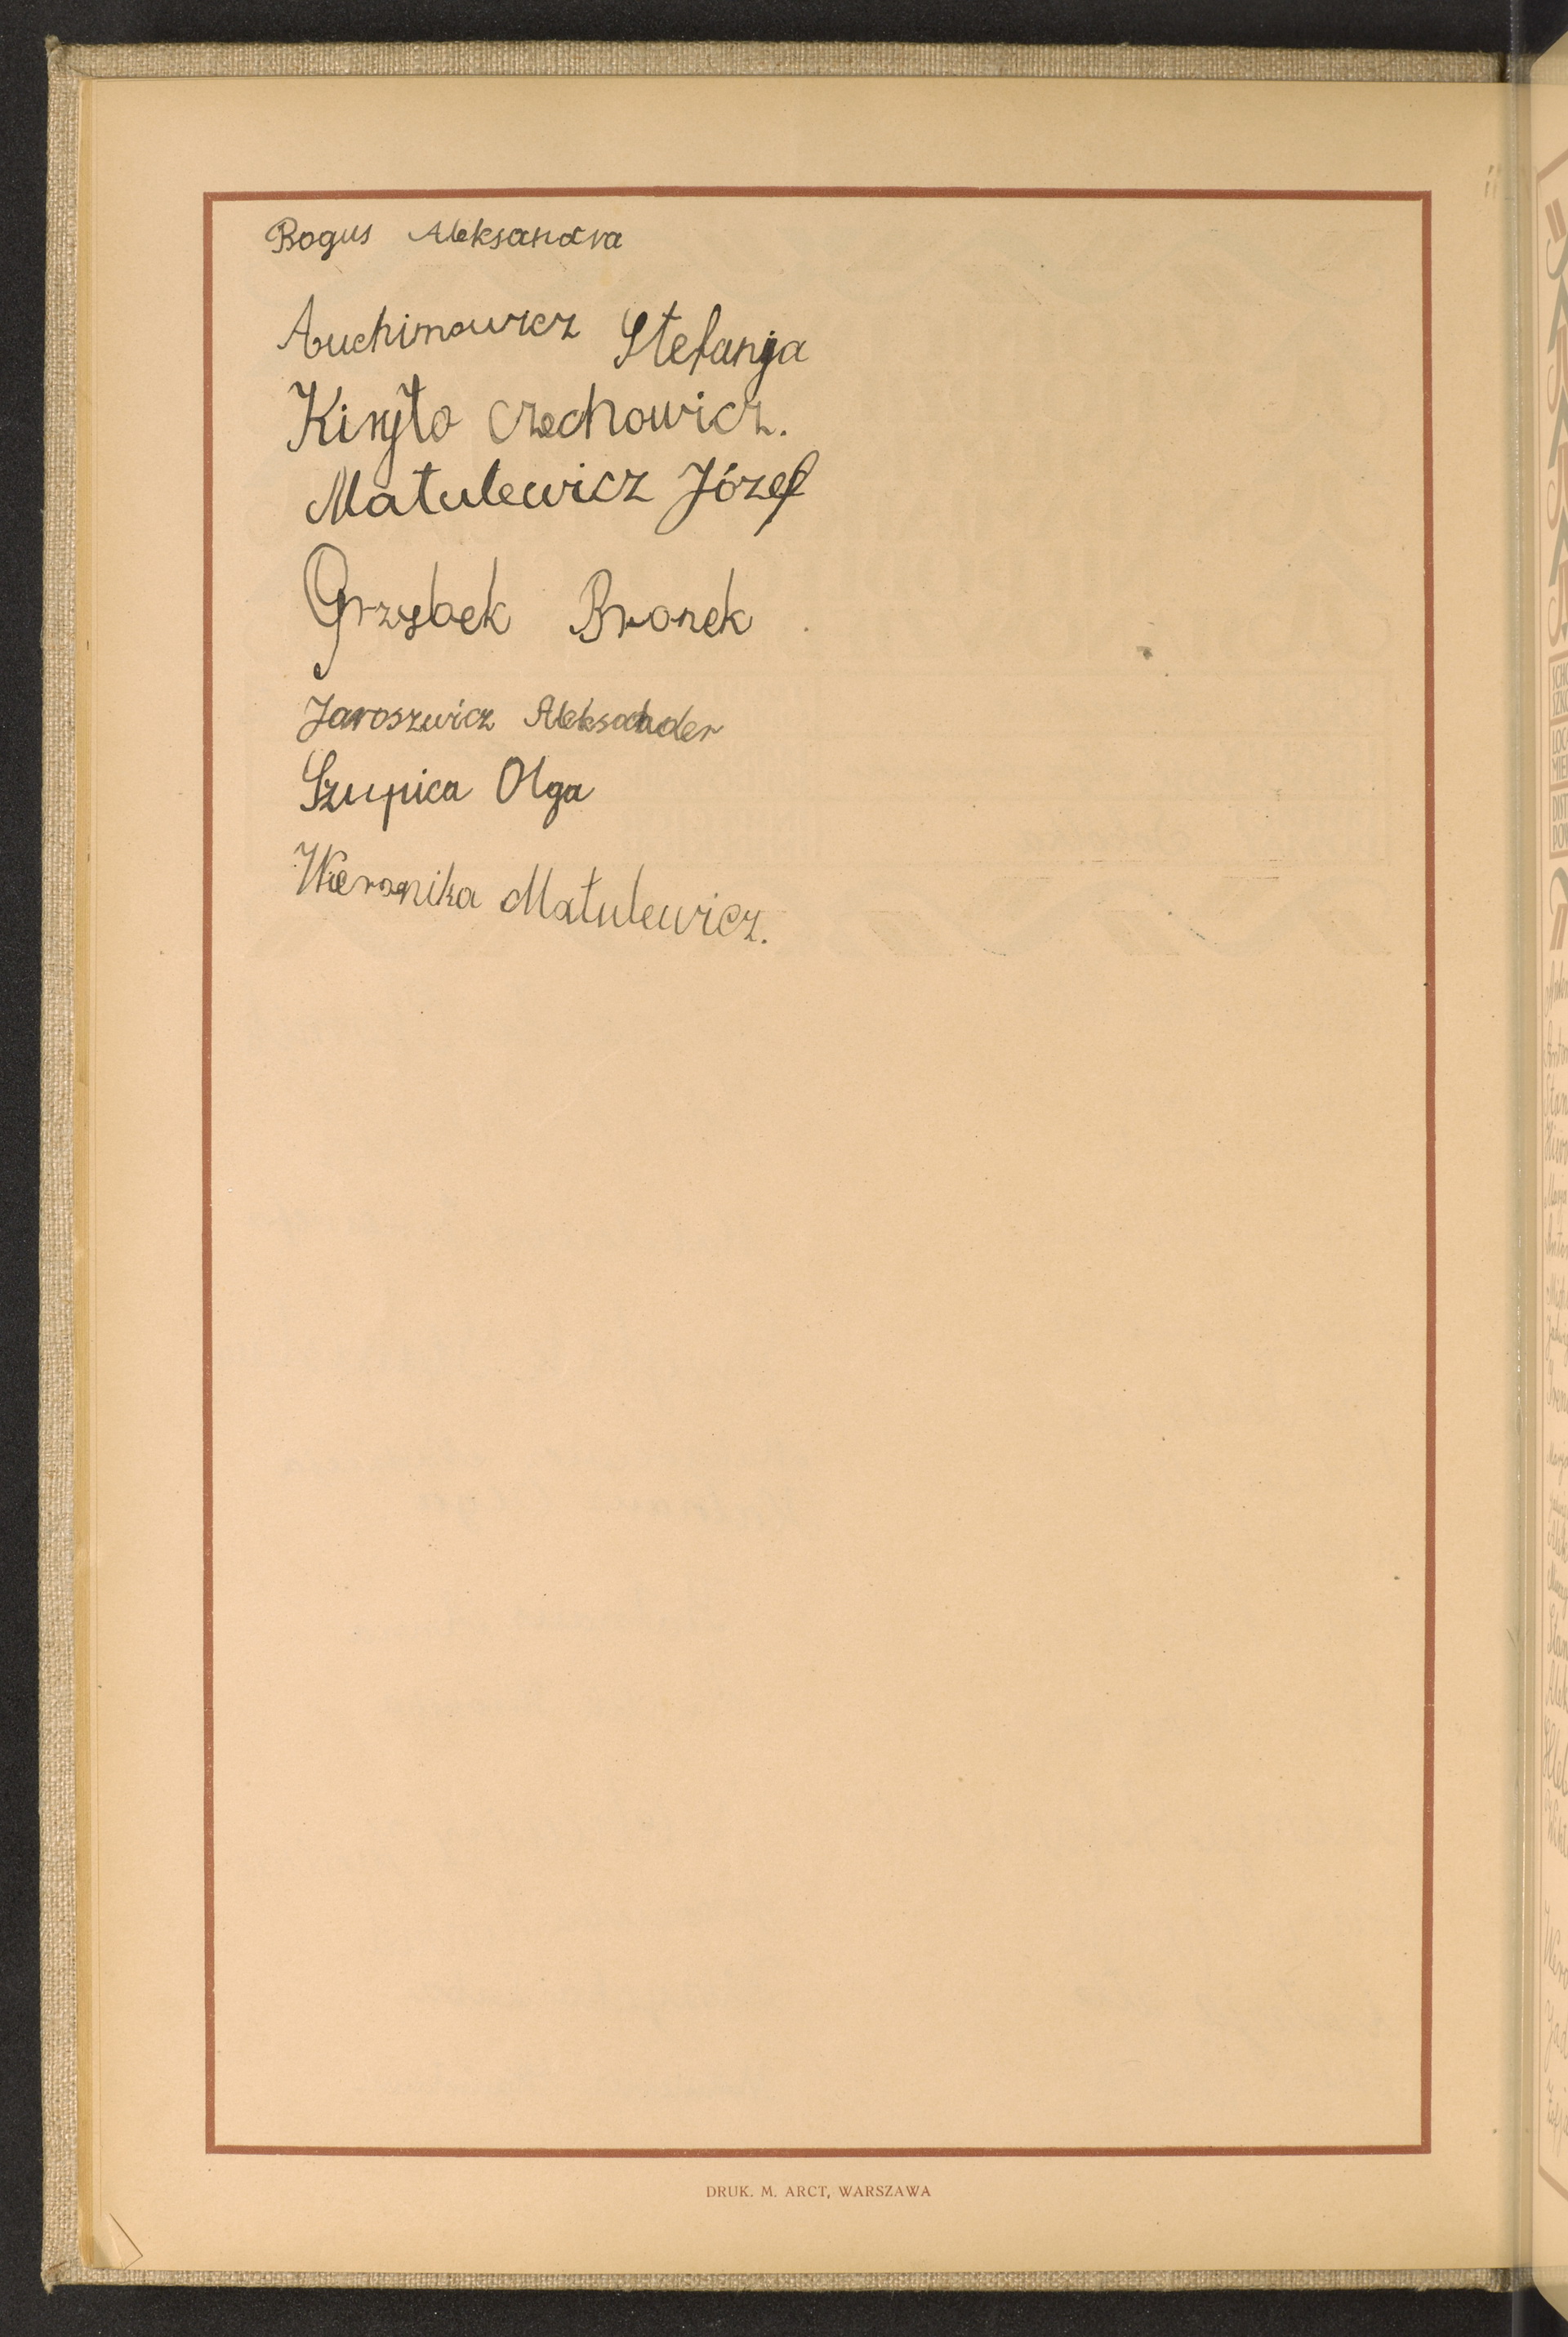 Bogus Aleksandra
Auchimowicz Stefanja
Kiryło Czechowicz.
Matulewicz Józef
Grzybek Bronek
Jaroszwicz Aleksander
Szupica Olga
Wieronika Matulewicz.
DRUK. M. ARCT, WARSZAWA